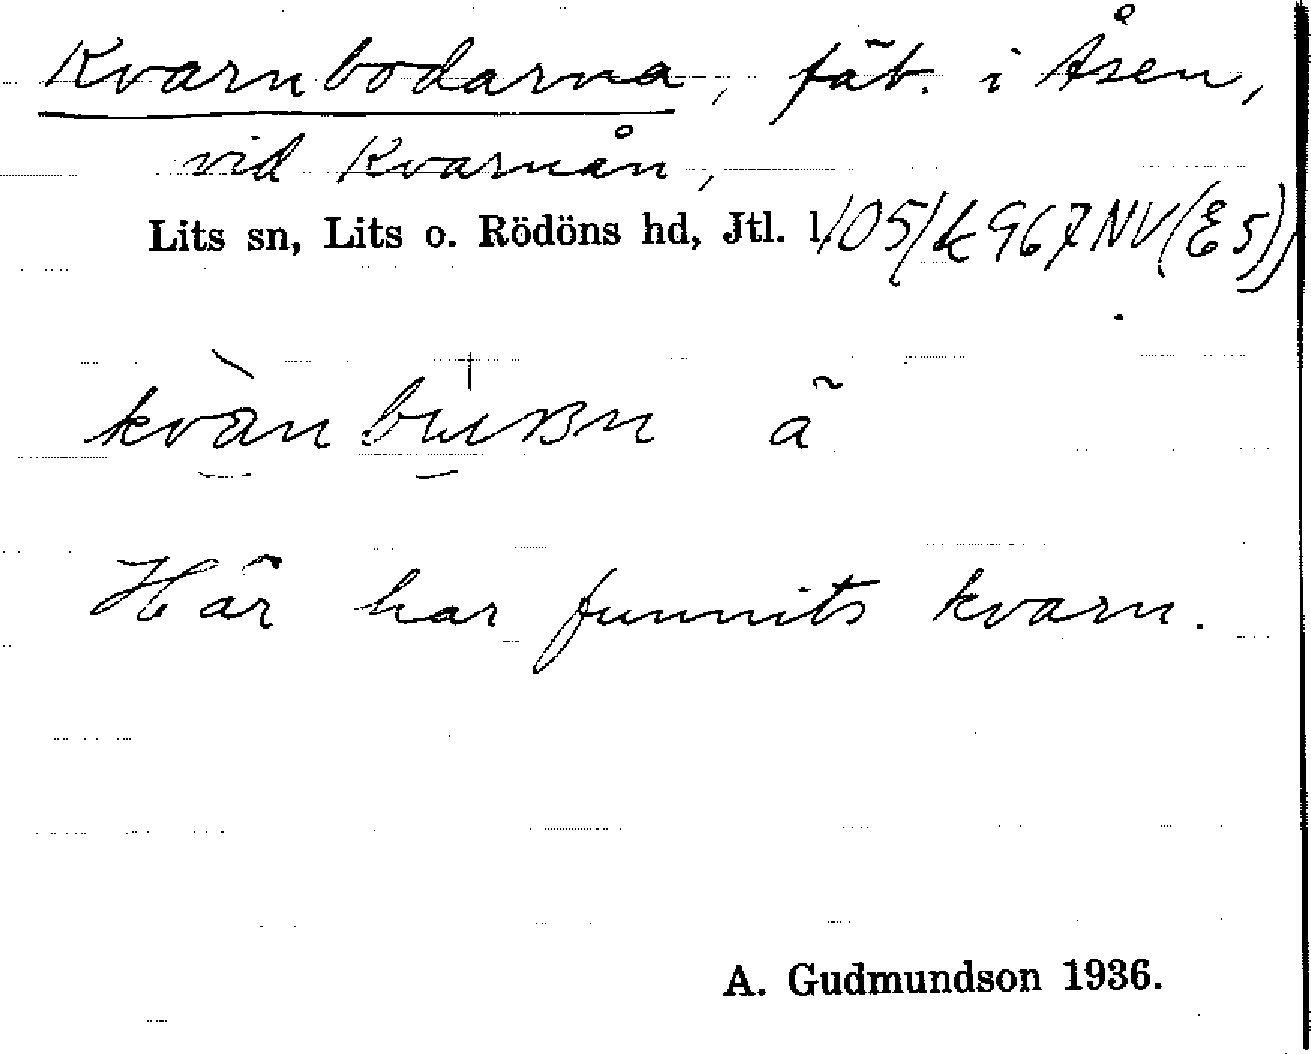 Kvarnbodarna, fäb. i Åsen,
vid Kvarnån,
Lits sn, Lits o. Rödöns hd, Jtl. l.
ä
Här har funnits kvarn.
A. Gudmundson 1936.